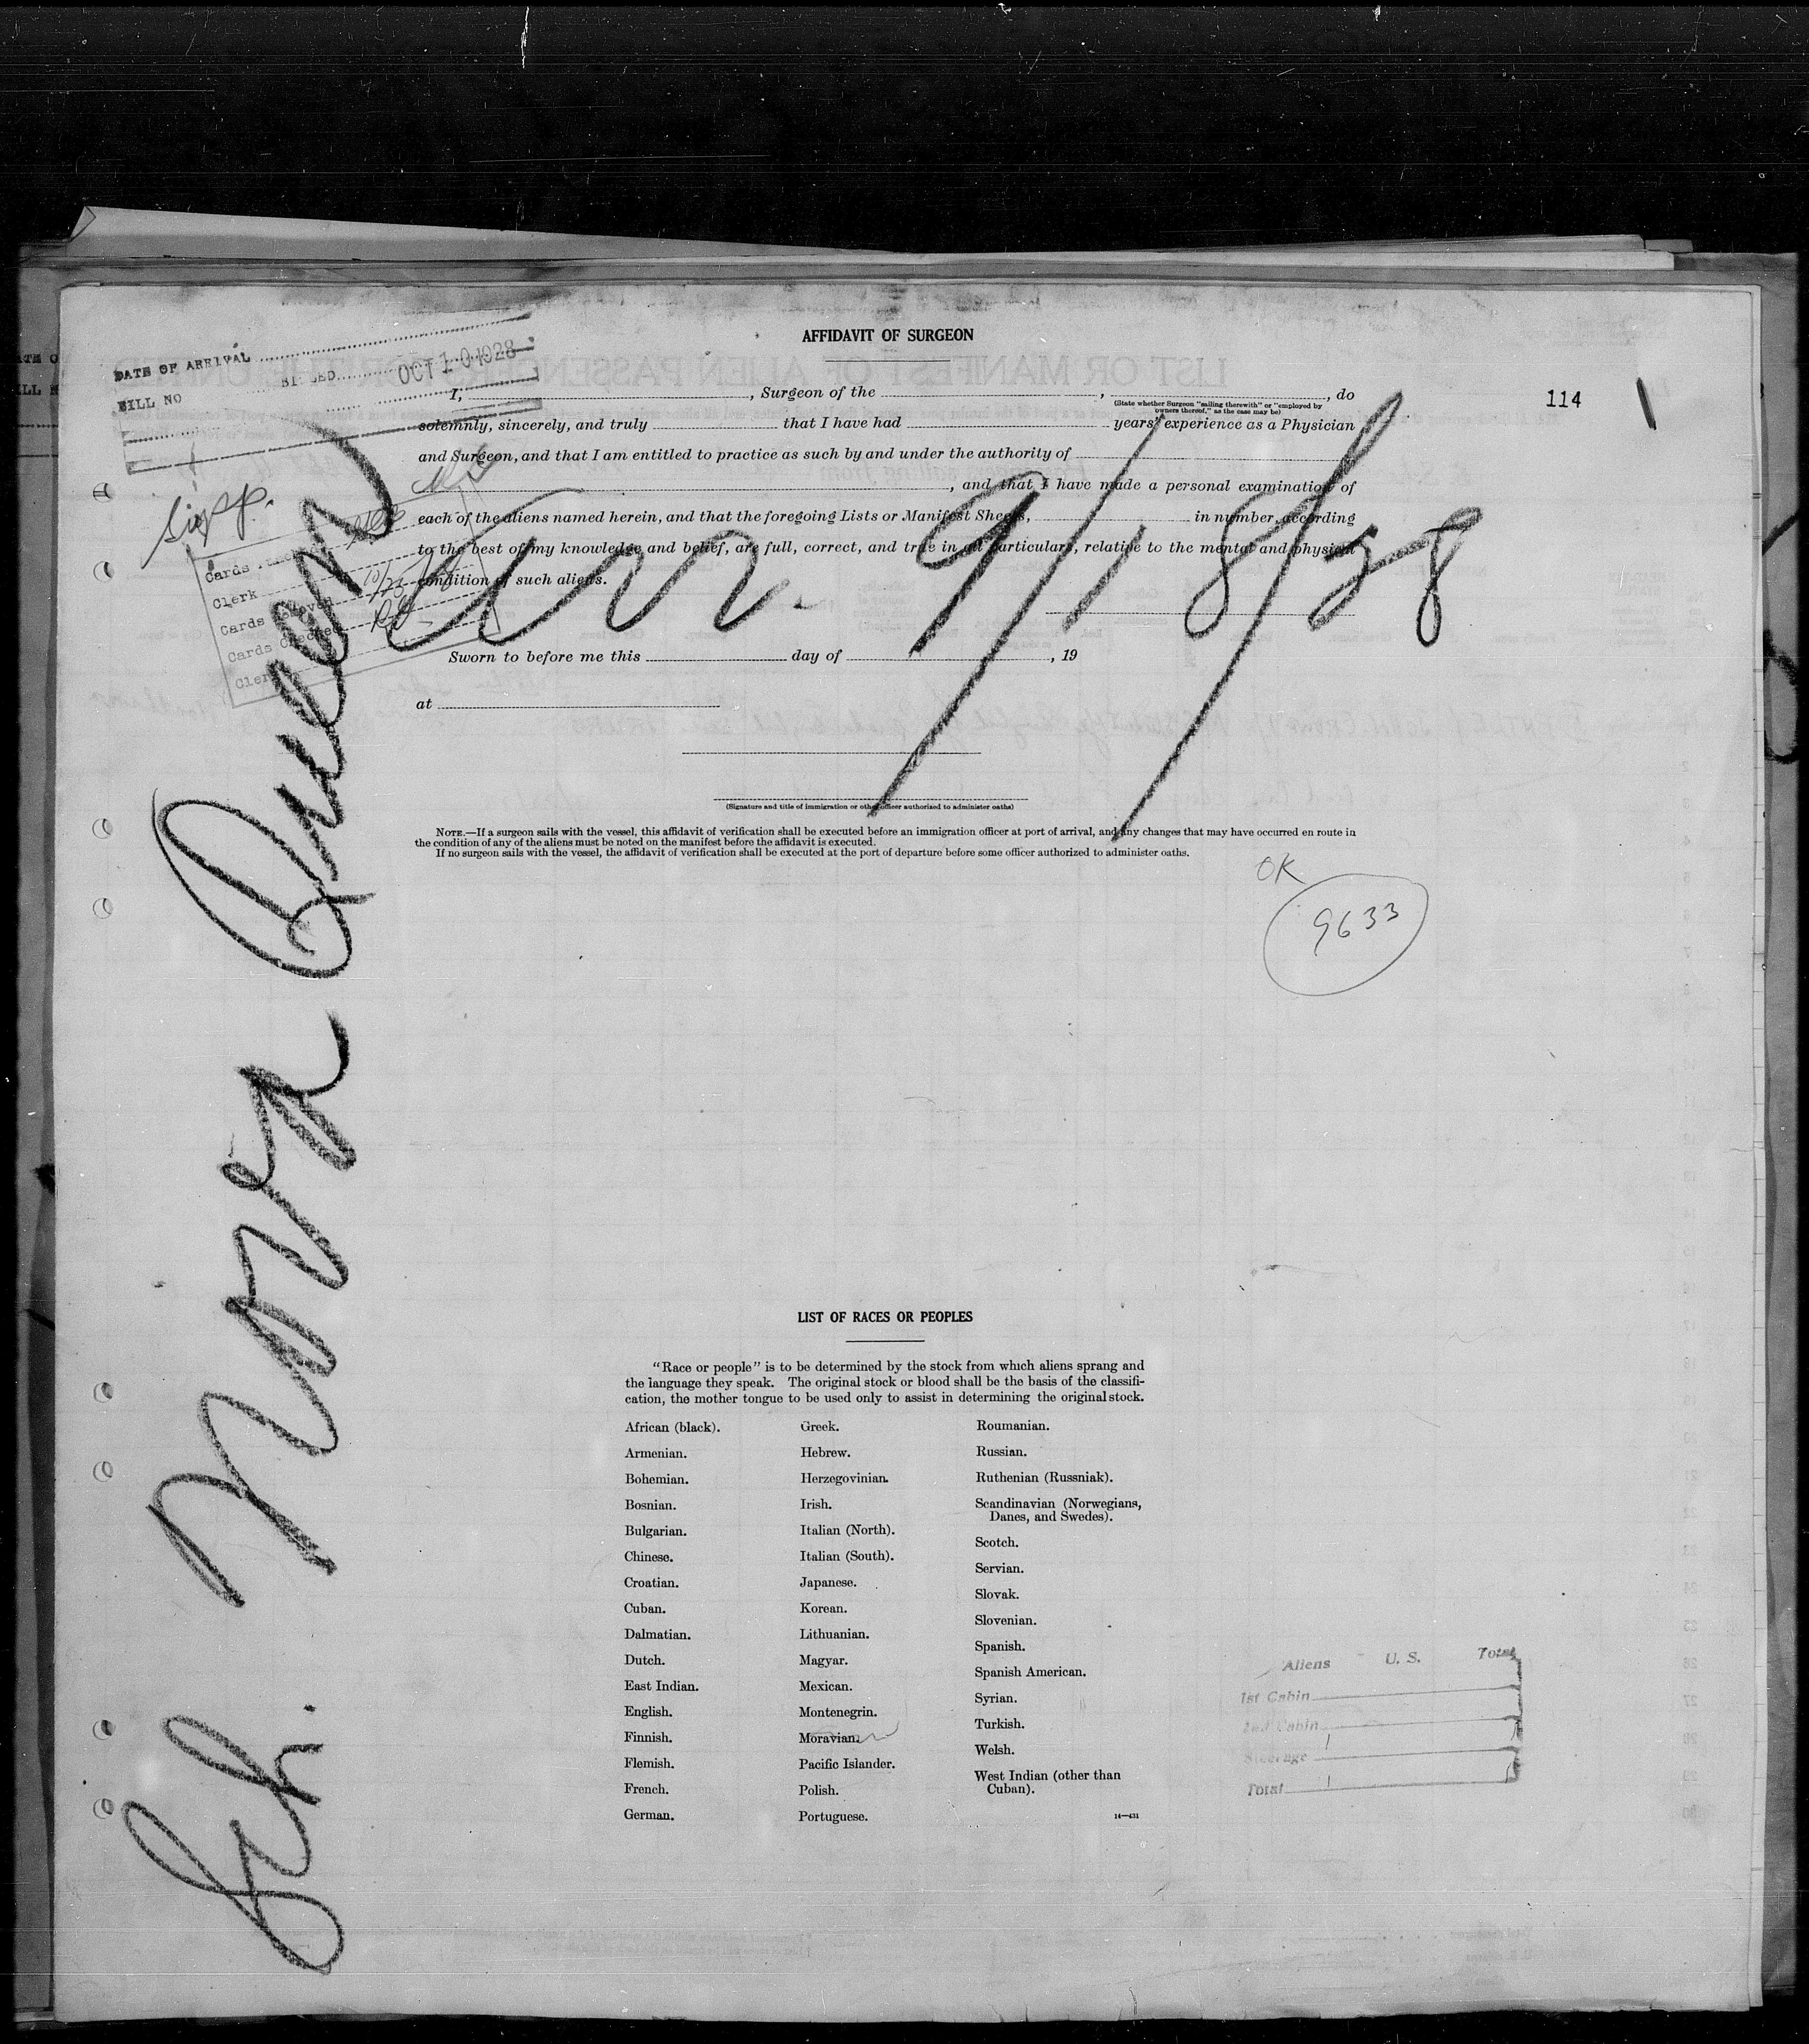 AFFIDAVIT OF SURGEON
DATE OF ARRIVAL
OCT 10 1928
BILL NO
114
I, , Surgeon of the , , do
(State whether Surgeon "sailing therewith" or "employed by
owners thereof," as the case may be)
solemnly, sincerely, and truly that I have had years' experience as a Physician
and Surgeon, and that I am entitled to practice as such by and under the authority of
, and that I have made a personal examination of
each of the aliens named herein, and that the foregoing Lists or Manifest Sheets, in number, according
to the best of my knowledge and belief, are full, correct, and true in all particulars, relative to the mental and physical
condition of such aliens.
9/18/28
Cards
Clerk
Cards
10/25
Cards Checked
Clerk
Sworn to before me this day of , 19
at
(Signature and title of immigration or other officer authorized to administer oaths)
NOTE.—If a surgeon sails with the vessel, this affidavit of verification shall be executed before an immigration officer at port of arrival, and any changes that may have occurred en route in
the condition of any of the aliens must be noted on the manifest before the affidavit is executed.
If no surgeon sails with the vessel, the affidavit of verification shall be executed at the port of departure before some officer authorized to administer oaths.
OK
9633
Sch. Nova Queen
LIST OF RACES OR PEOPLES
"Race or people" is to be determined by the stock from which aliens sprang and
the language they speak. The original stock or blood shall be the basis of the classifi-
cation, the mother tongue to be used only to assist in determining the original stock.
African (black).
Armenian.
Bohemian.
Bosnian.
Bulgarian.
Chinese.
Croatian.
Cuban.
Dalmatian.
Dutch.
East Indian.
English.
Finnish.
Flemish.
French.
German.
Greek.
Hebrew.
Herzegovinian.
Irish.
Italian (North).
Italian (South).
Japanese.
Korean.
Lithuanian.
Magyar.
Mexican.
Montenegrin.
Moravian.
Pacific Islander.
Polish.
Portuguese.
Roumanian.
Russian.
Ruthenian (Russniak).
Scandinavian (Norwegians,
Danes, and Swedes).
Scotch.
Servian.
Slovak.
Slovenian.
Spanish.
Spanish American.
Syrian.
Turkish.
Welsh.
West Indian (other than
Cuban).
14—431
Aliens U. S. Total
1st Cabin
2nd Cabin
Steerage 1
Total 1